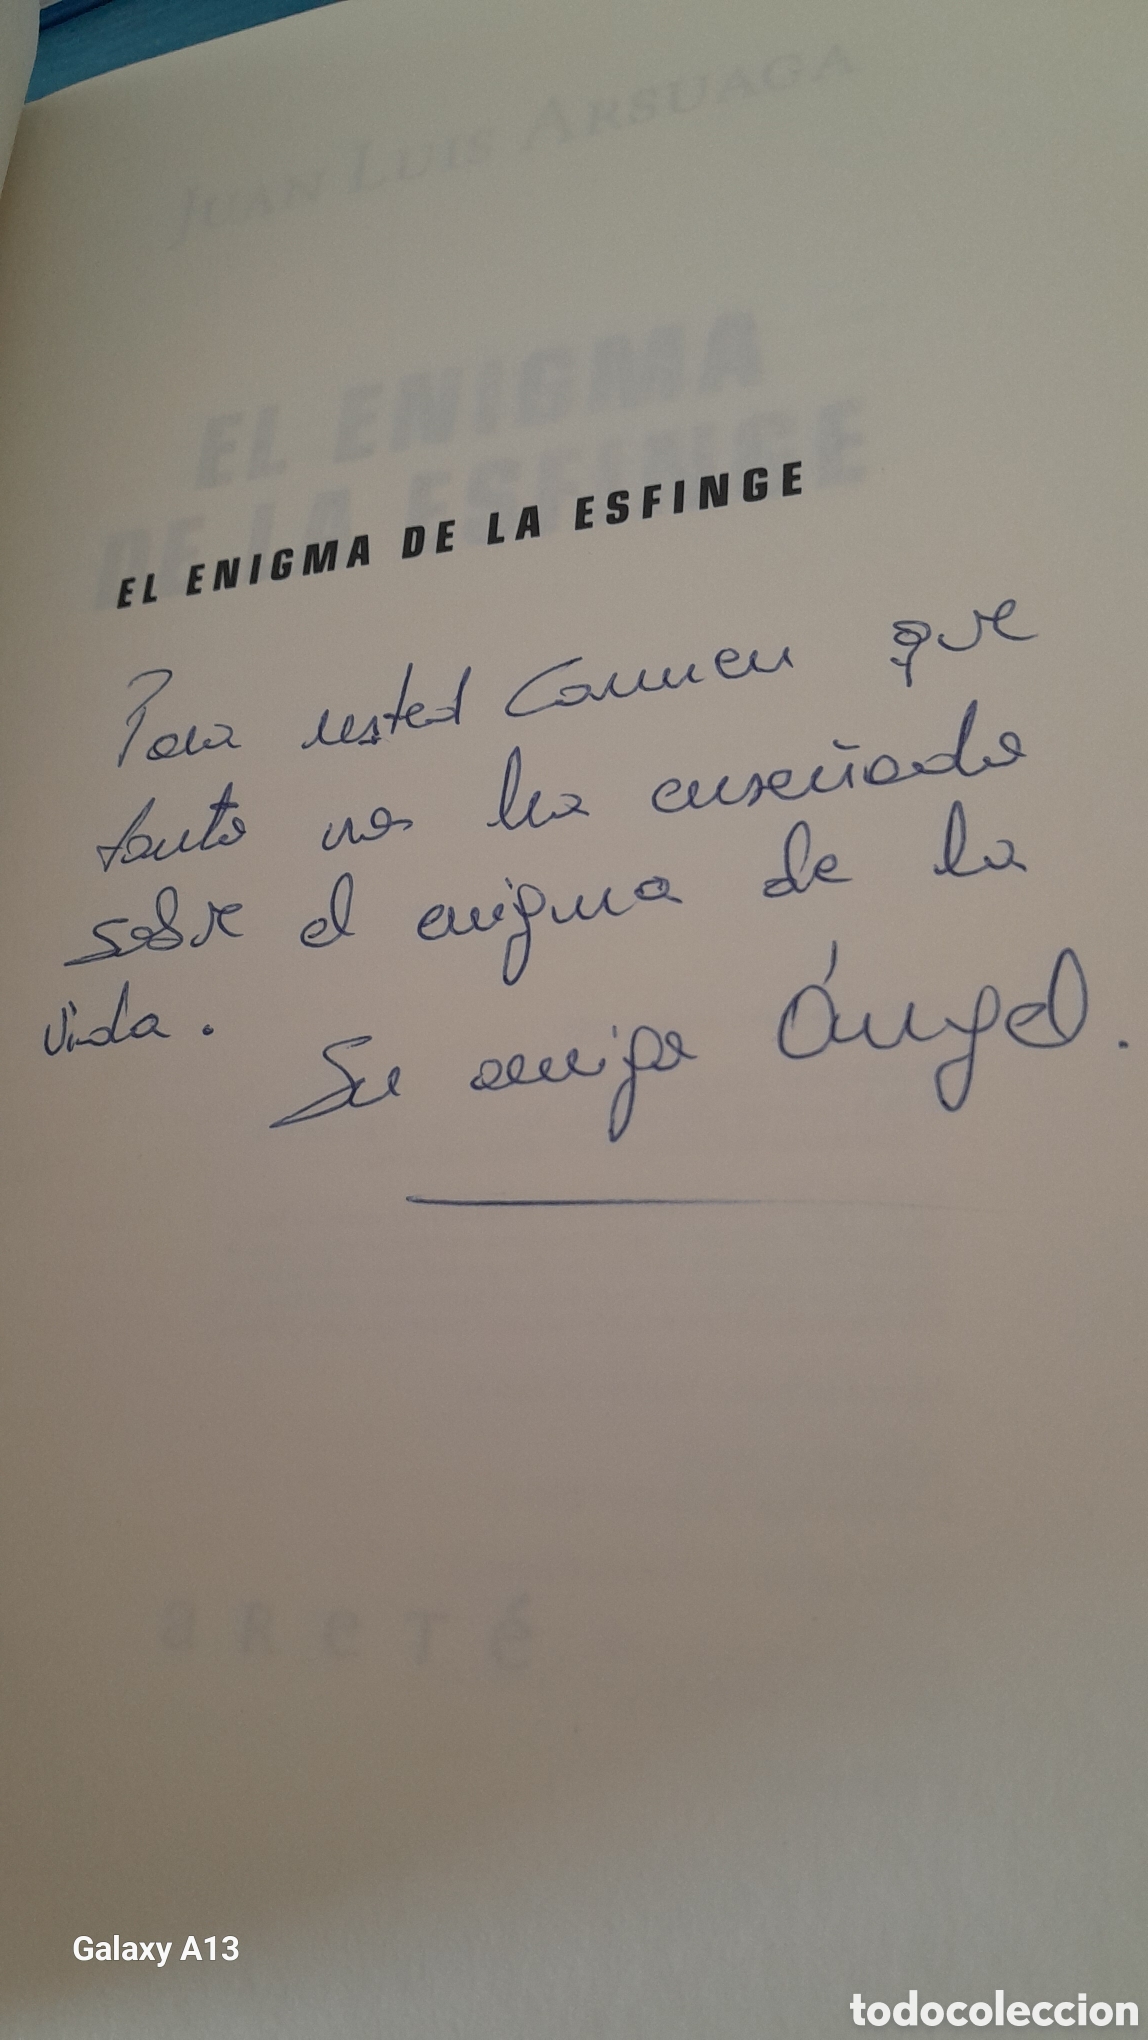 JUAN LUIS ARSUAGA
EL ENIGMA
DE LA ESFINGE
EL ENIGMA DE LA ESFINGE
Para usted Carmen que
tanto nos ha enseñado
sobre el enigma de la
vida.
Su amigo Ángel.
aReTé
Galaxy A13
todocoleccion